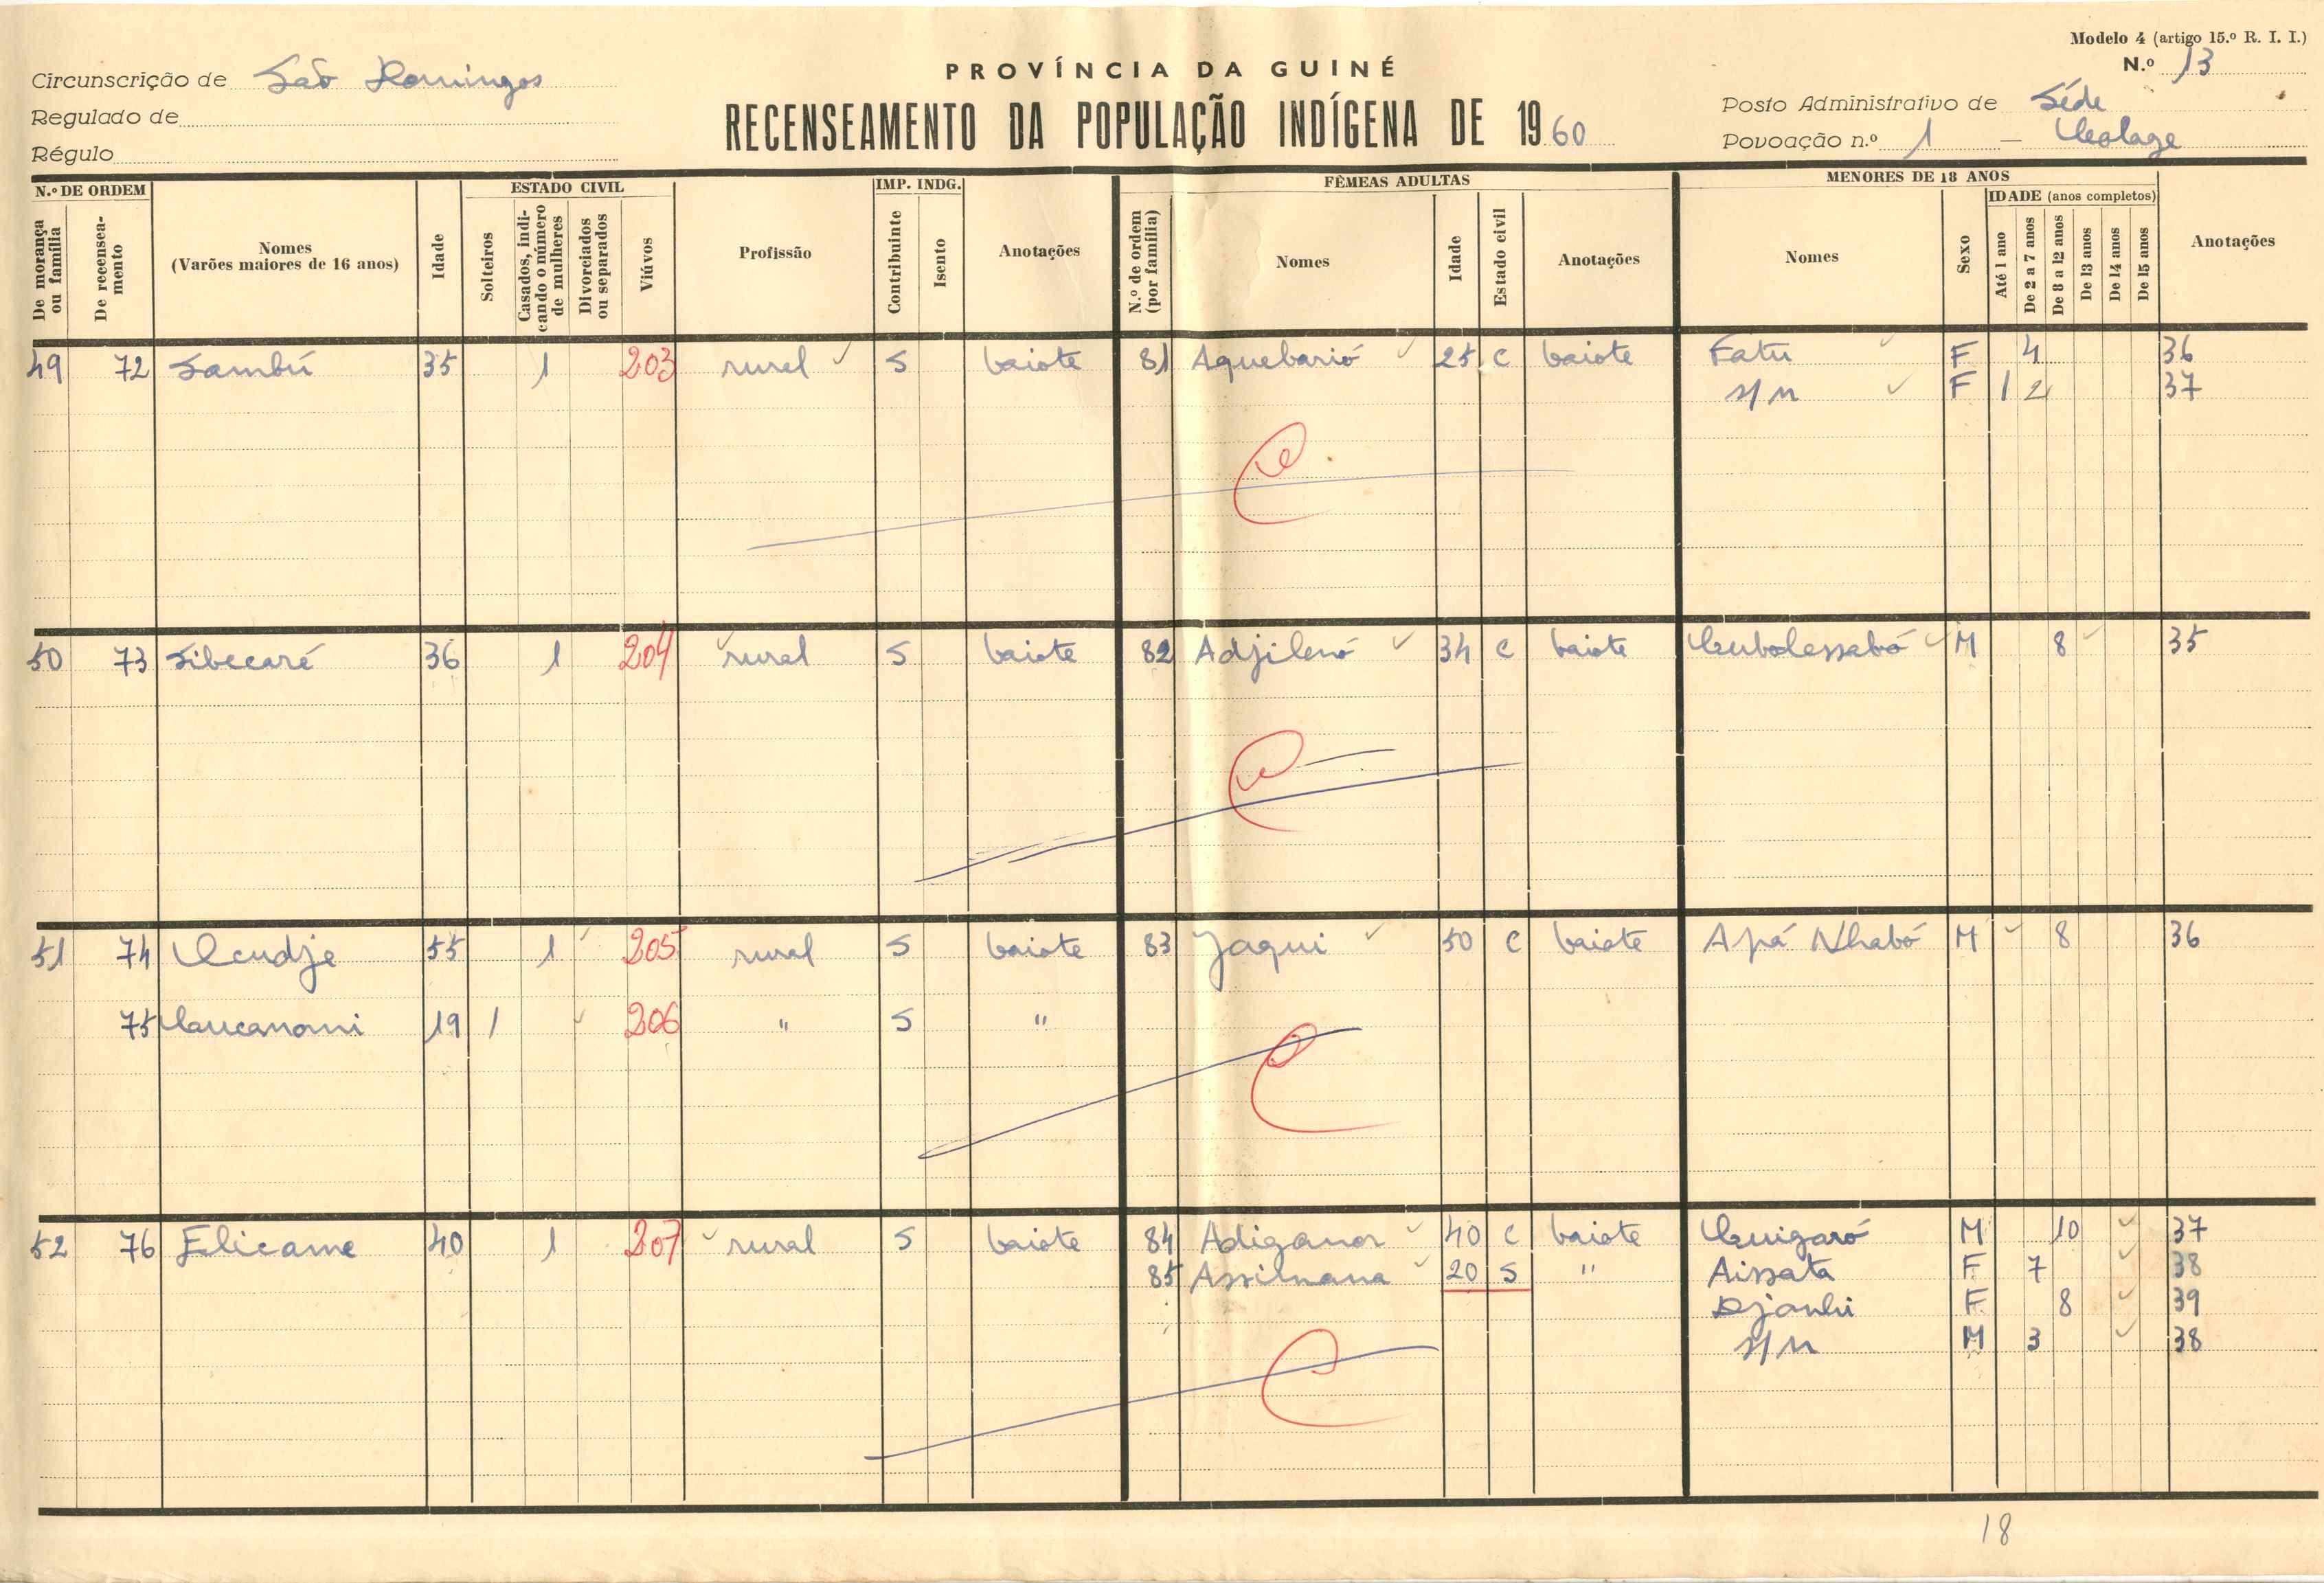 Modelo 4 (artigo 15.º R. I. I.)
N.º 13
PROVÍNCIA DA GUINÉ
RECENSEAMENTO DA POPULAÇÃO INDÍGENA DE 1960
Circunscrição de São Domingos
Regulado de
Régulo
Posto Administrativo de Séde
Povoação n.º 1 —
N.º DE ORDEM
De morança ou família
De recenseamento
Nomes
(Varões maiores de 16 anos)
Idade
ESTADO CIVIL
Solteiros
Casados, indicando o número de mulheres
Divorciados ou separados
Viúvos
Profissão
IMP. INDG.
Contribuinte
Isento
Anotações
FÊMEAS ADULTAS
N.º de ordem (por família)
Nomes
Idade
Estado civil
Anotações
MENORES DE 18 ANOS
Nomes
Sexo
IDADE (anos completos)
Até 1 ano
De 2 a 7 anos
De 8 a 12 anos
De 13 anos
De 14 anos
De 15 anos
Anotações
49 72 Sambú 35 1 203 rural S baiote 81 Aquebarió 25 C baiote Fatu F 4 36
s/n F 1 2 37
50 73 Sibecaré 36 1 204 rural S baiote 82 Adjilenó 34 C baiote M 8 35
51 74 55 1 205 rural S baiote 83 Jaqui 50 C baiote Apá Nhabó M 8 36
75 19 1 206 " S "
52 76 Elicame 40 1 207 rural S baiote 84 40 C baiote M 10 37
85 Assilnana 20 S " Aissata F 7 38
F 8 39
s/n M 3 38
18